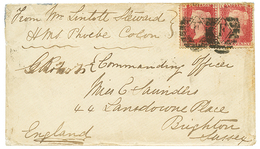 From Wm Lintott Steward
HMS Phoebe Colon
Commanding Officer
Miss C Saunders
44 Lansdowne Place
Brighton
England
Sussex